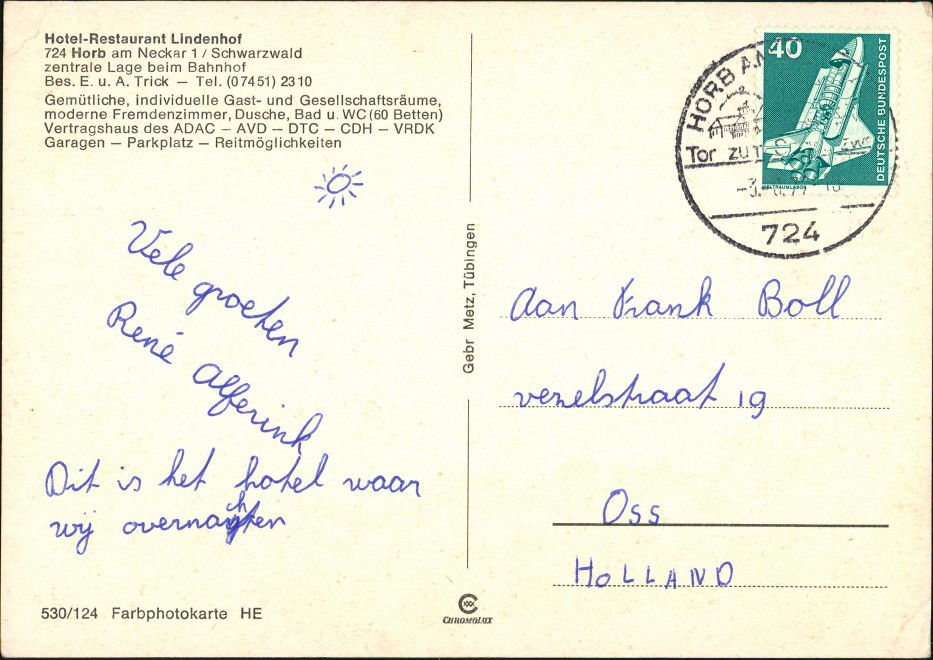 Hotel-Restaurant Lindenhof
724 Horb am Neckar 1 / Schwarzwald
zentrale Lage beim Bahnhof
Bes. E. u. A. Trick — Tel. (07451) 2310
Gemütliche, individuelle Gast- und Gesellschaftsräume,
moderne Fremdenzimmer, Dusche, Bad u. WC (60 Betten)
Vertragshaus des ADAC — AVD — DTC — CDH — VRDK
Garagen — Parkplatz — Reitmöglichkeiten
Vele groeten
René Alferink
Dit is het hotel waar
wij overnachten
530/124 Farbphotokarte HE
Gebr Metz, Tübingen
CHROMOLUX
40
DEUTSCHE BUNDESPOST
WELTRAUMLABOR
HORB AM
Tor zum
724
Aan Frank Boll
vezelstraat 19
Oss
HOLLAND